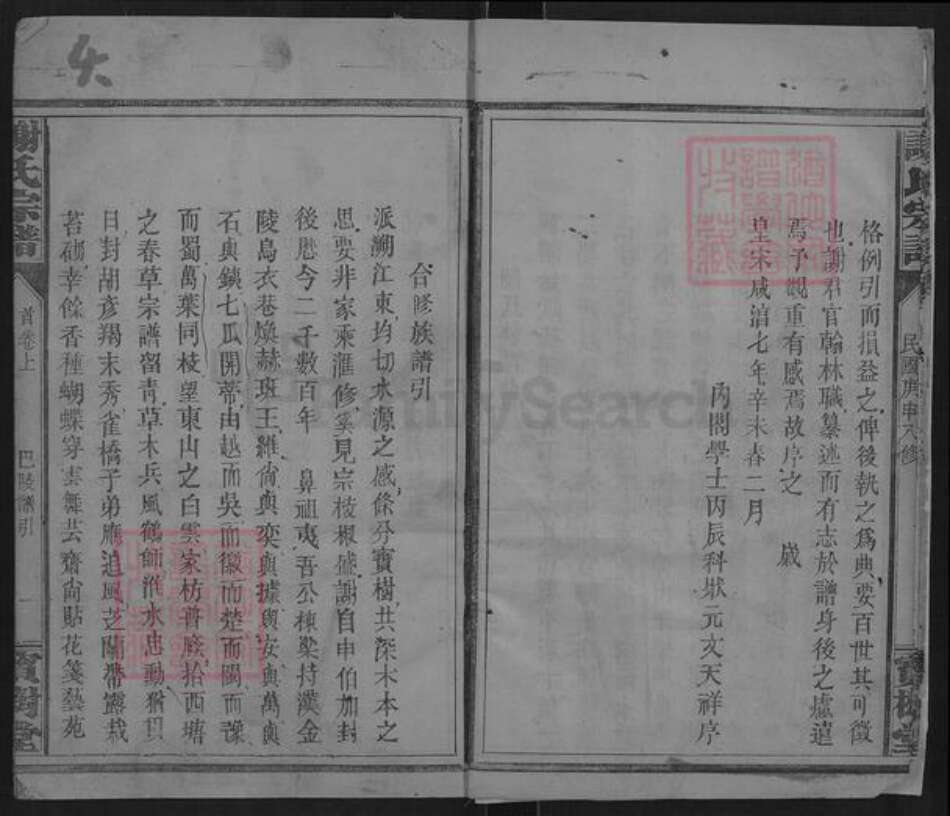 謝氏宗譜
民國庚申大修
寶樹堂
格例引而損益之俾後執之爲典要百世其可徵
也謝君官翰林職纂述而有志於譜身後之慮遠
焉予覬重有感焉故序之 歲
皇宋咸淳七年辛未春二月
內閣學士丙辰科狀元文天祥序
合修族譜引
派溯江東均切水源之感條分寶樹共深木本之
思要非家乘滙修奚見宗枝椒盛謝自申伯加封
後厯今二千數百年 鼻祖夷吾公棟梁持漢金
陵烏衣巷煥赫班王維尙與奕與據與安與萬與
石與鐵七瓜開蒂由越而吳而徽而楚而閩而豫
而蜀萬葉同枝望東山之白雲家枋普廕拾西塘
之春草宗譜留靑草木兵風鶴師淮水忠動猶
日對胡彥羯末秀雀橋子弟應追風芝蘭帶露栽
苔砌幸餘香種蝴蝶穿畫舞芸齋尙貼花箋藝苑
謝氏宗譜
首卷上
巴陵譜引
一
寶樹堂
FamilySearch